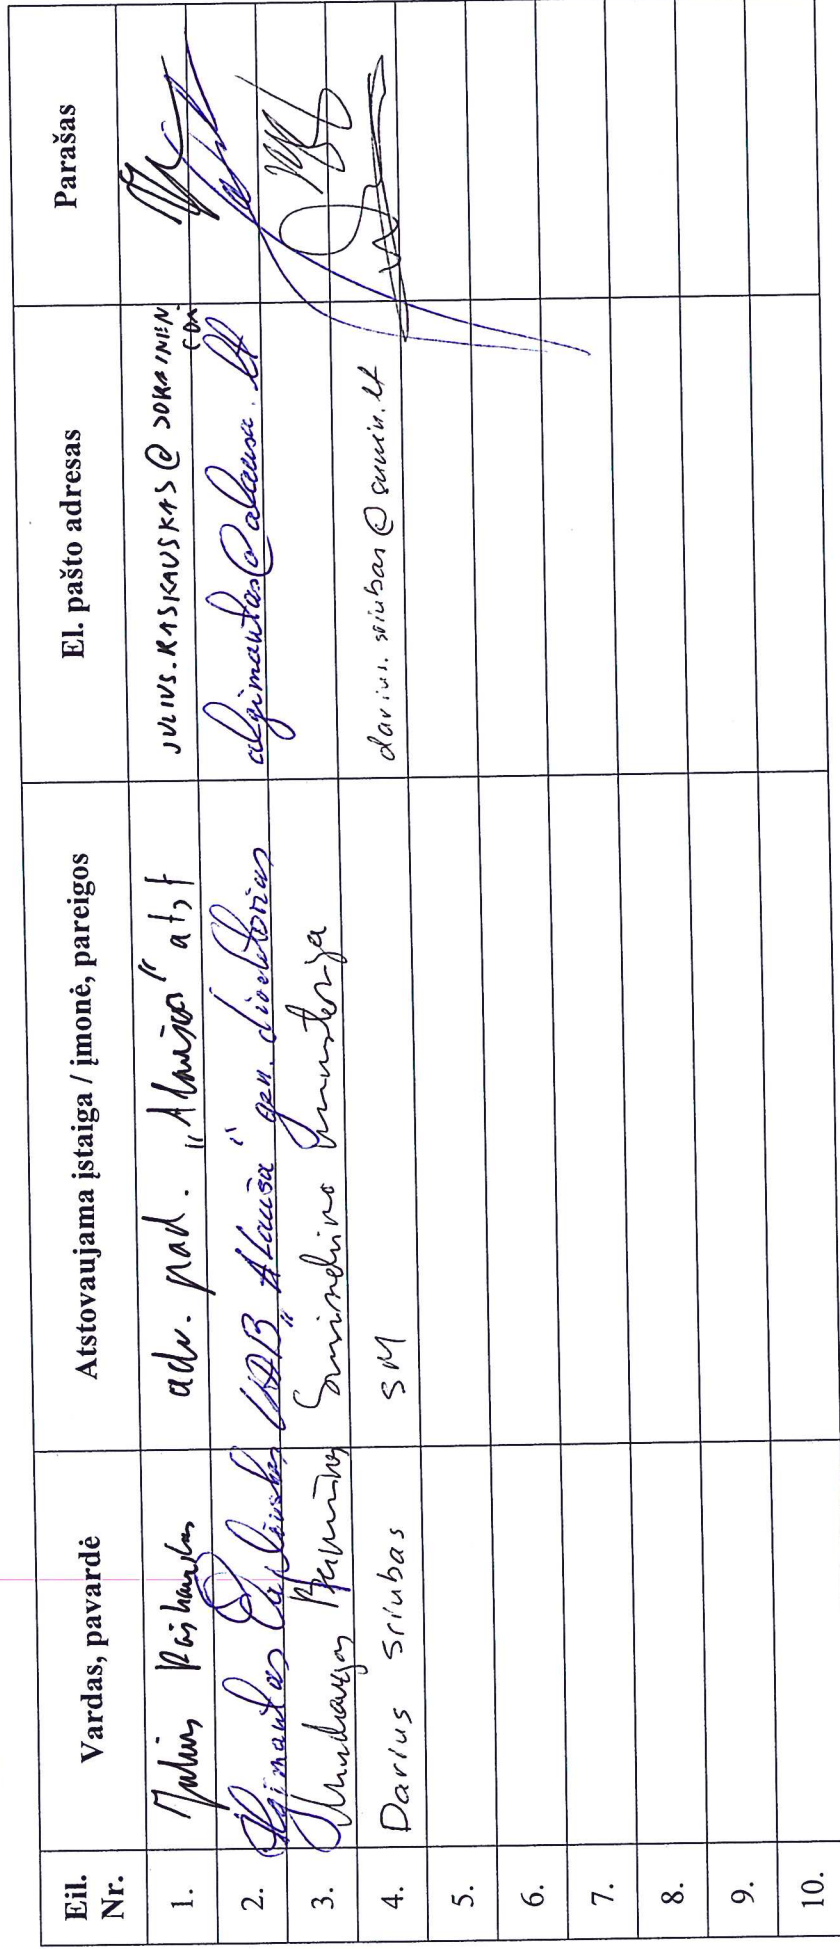 Eil. Nr. Vardas, pavardė Atstovaujama įstaiga / įmonė, pareigos El. pašto adresas Parašas
1. Julius Raškauskas adv. pad. „Alaušos“ atst JULIUS.RASKAUSKAS@SORAINEN.COM
2. Algimantas UAB „Alauša“ gen. direktorius algimantas@alausa.lt
3. Mindaugas Susisiekimo ministerija
4. Darius Sriubas SM darius.sriubas@sumin.lt
5.
6.
7.
8.
9.
10.